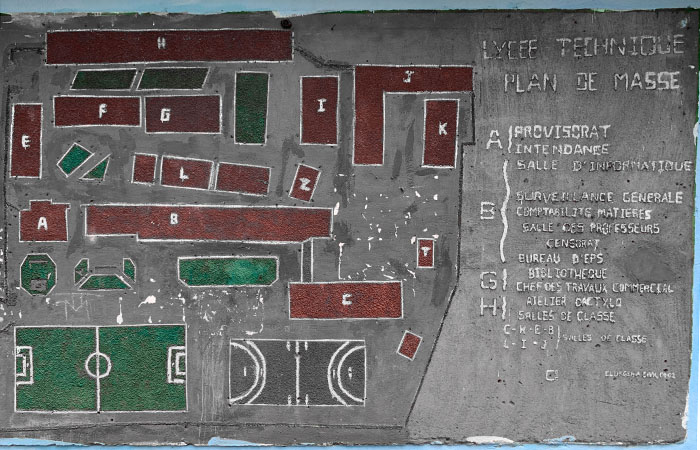 LYCEE TECHNIQUE
PLAN DE MASSE
H
J
F
G
I
K
E
L
Z
A
B
T
C
A PROVISORAT
INTENDANCE
SALLE D'INFORMATIQUE
B SURVEILLANCE GENERALE
COMPTABILITE MATIERES
SALLE DES PROFESSEURS
CENSORAT
BUREAU D'EPS
BIBLIOTHEQUE
G CHEF DES TRAVAUX COMMERCIAL
H ATELIER DACTYLO
SALLES DE CLASSE
C-K-E-B
L-I-J SALLES DE CLASSE